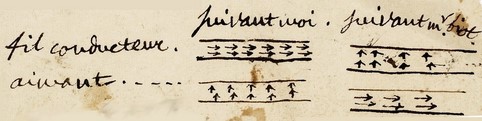 suivant moi. suivant mr. Biot
fil conducteur.
aimant.....